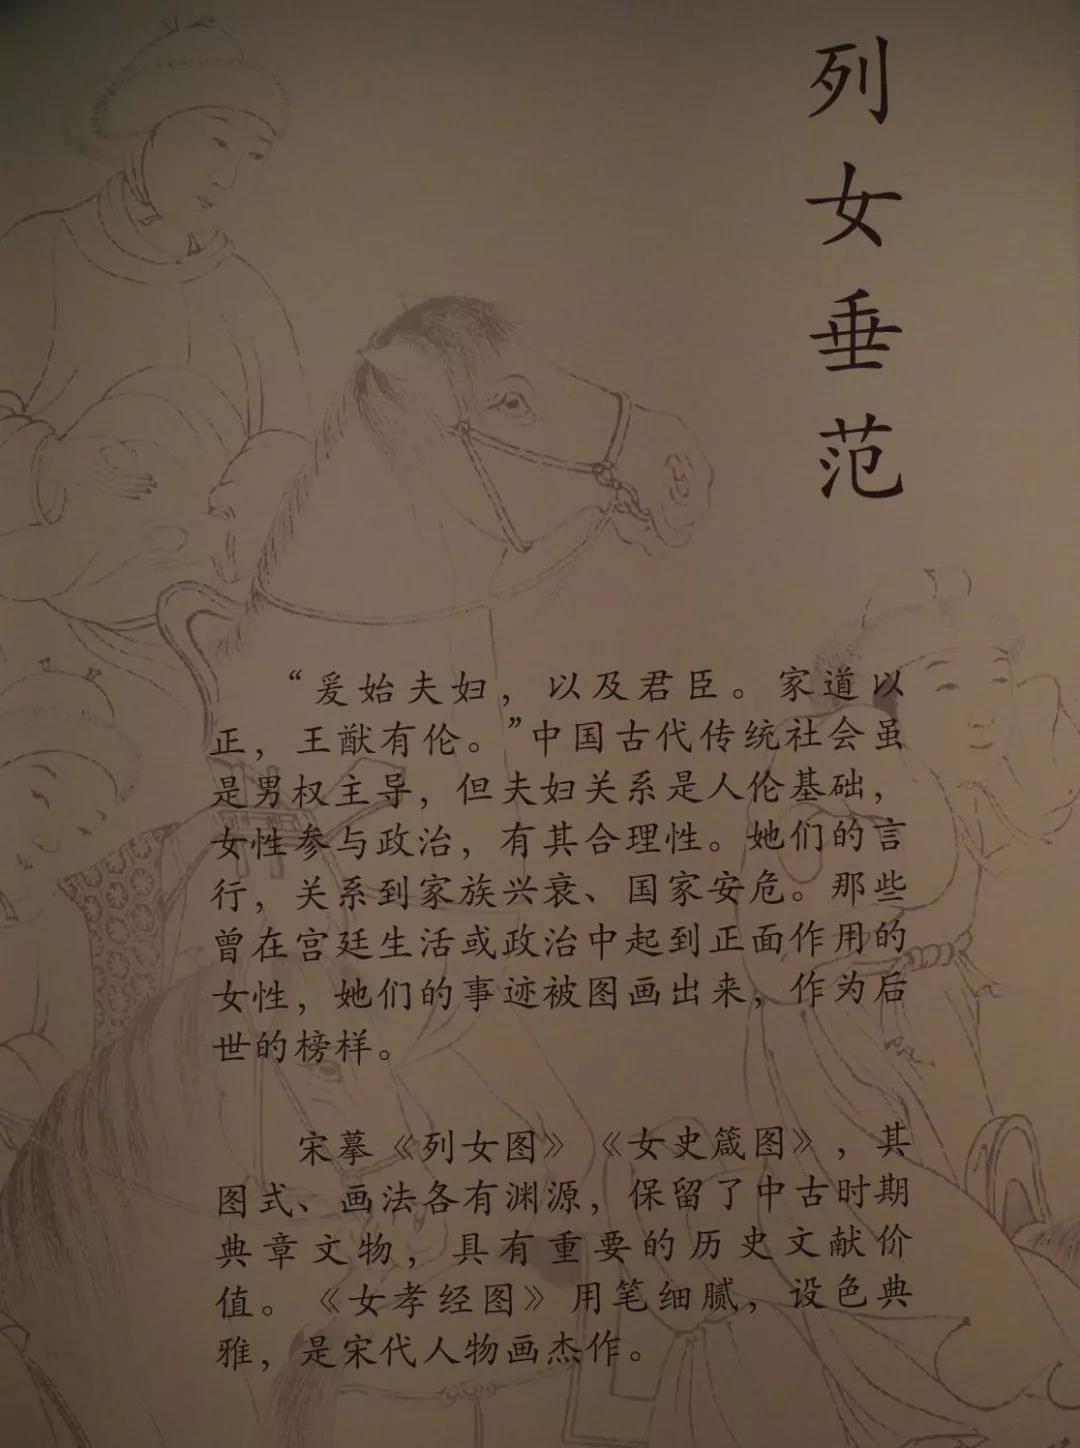 列女垂范
“爰始夫妇，以及君臣。家道以
正，王猷有伦。”中国古代传统社会虽
是男权主导，但夫妇关系是人伦基础，
女性参与政治，有其合理性。她们的言
行，关系到家族兴衰、国家安危。那些
曾在宫廷生活或政治中起到正面作用的
女性，她们的事迹被图画出来，作为后
世的榜样。
宋摹《列女图》《女史箴图》，其
图式、画法各有渊源，保留了中古时期
典章文物，具有重要的历史文献价
值。《女孝经图》用笔细腻，设色典
雅，是宋代人物画杰作。